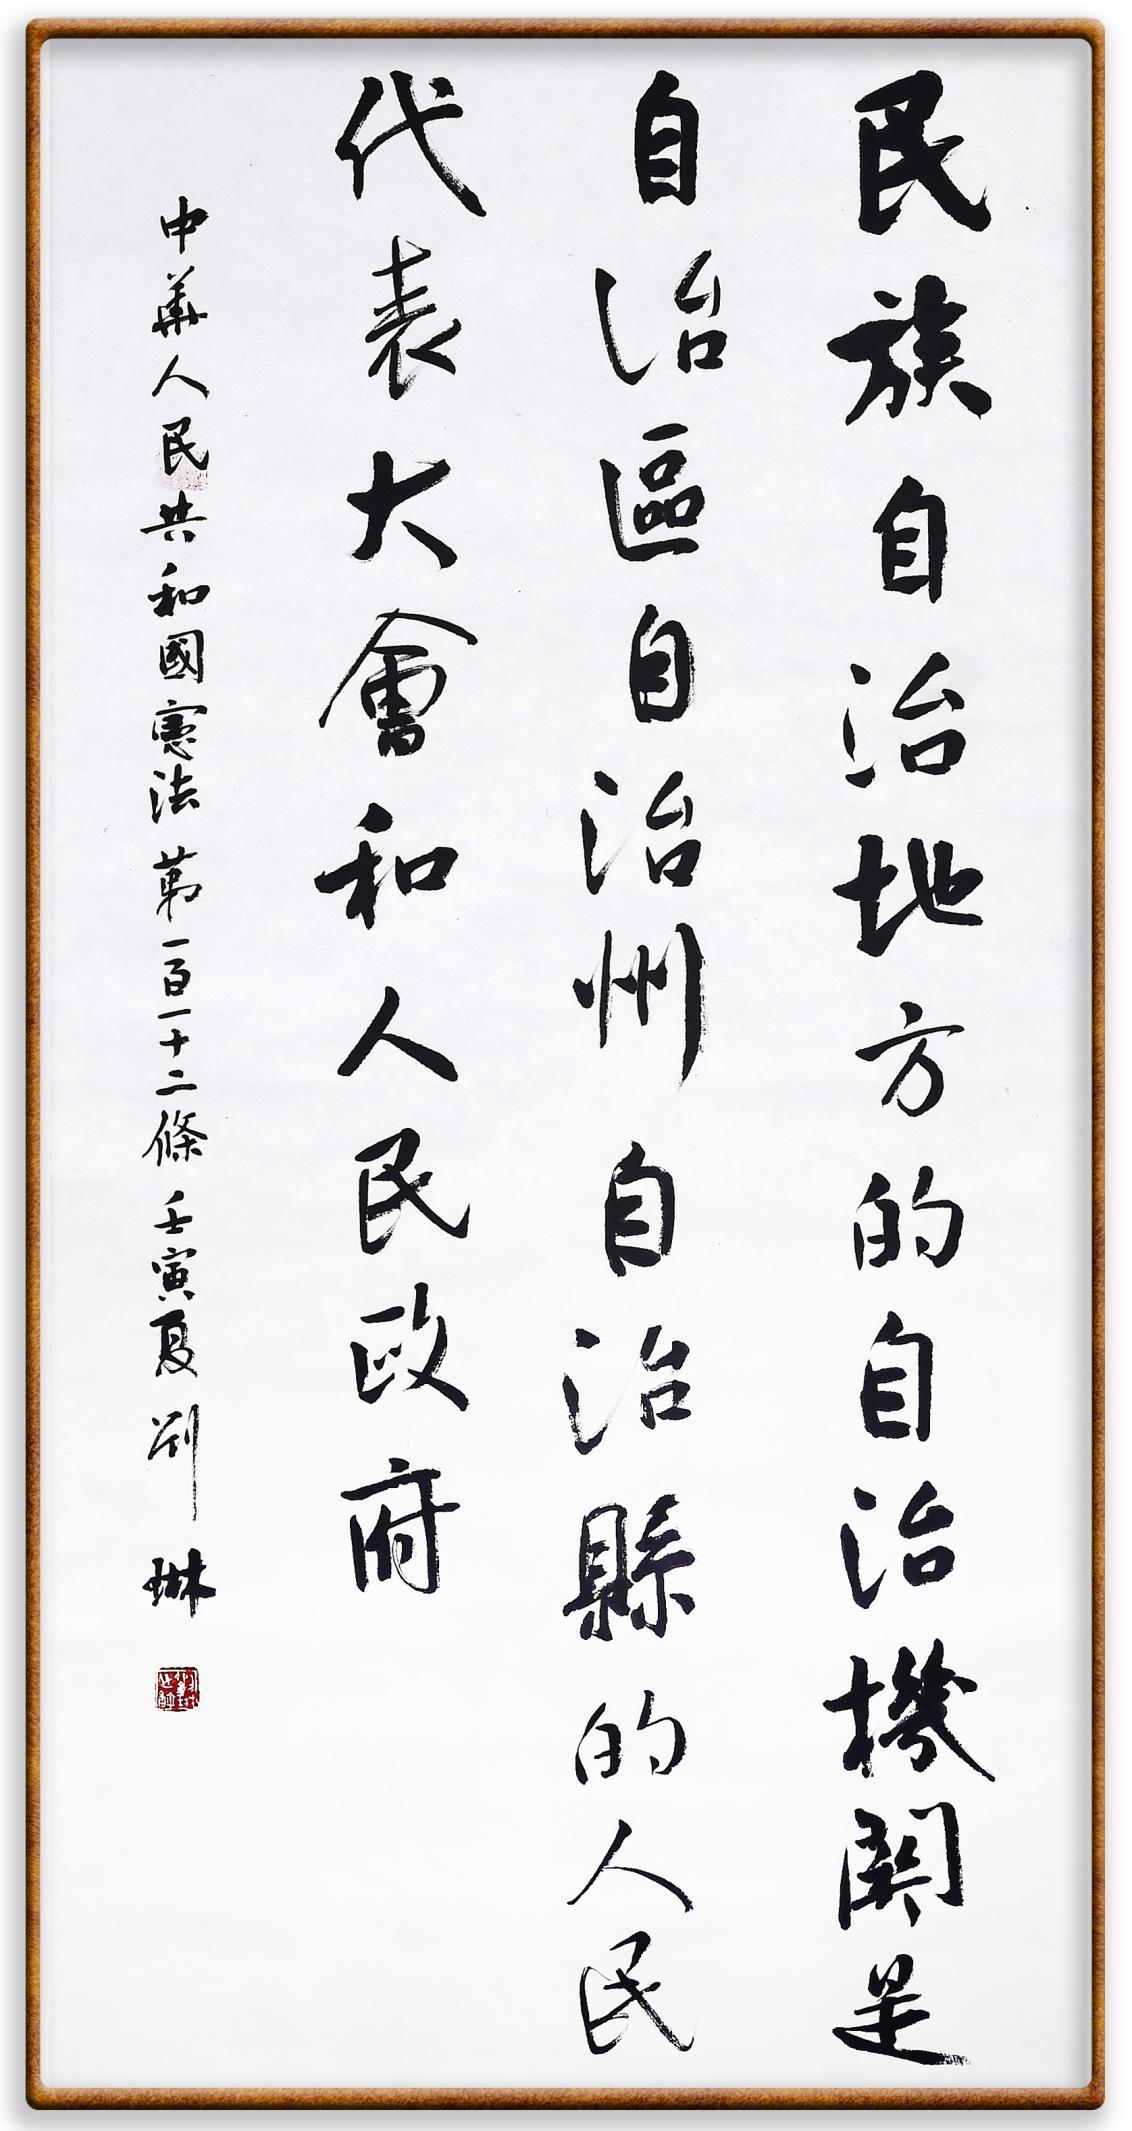 民族自治地方的自治機関是
自治區自治州自治縣的人民
代表大會和人民政府
中華人民共和國憲法第一百一十二條壬寅夏劉琳